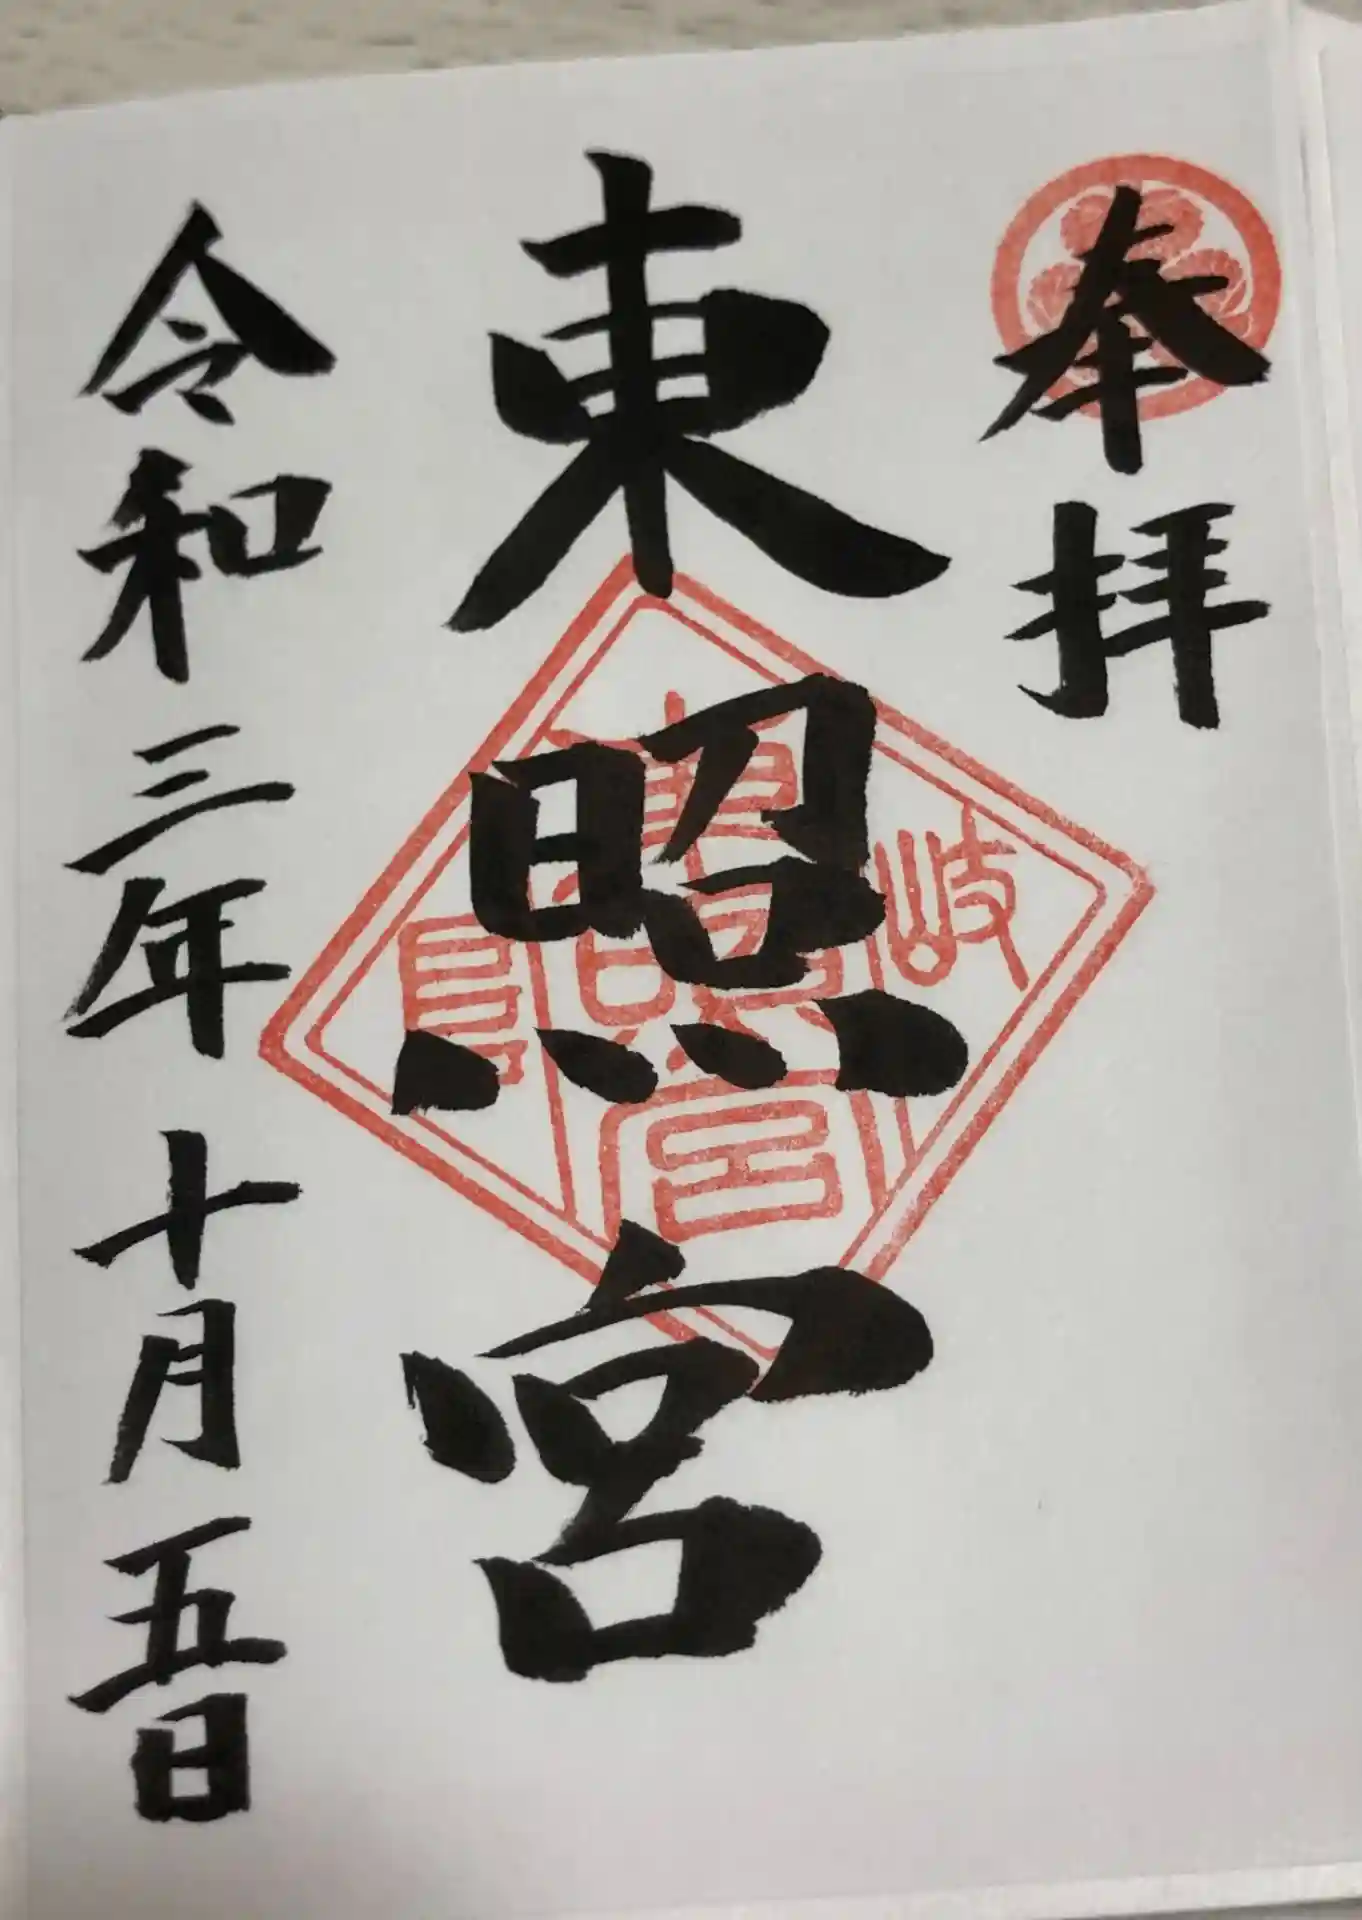 奉拝
東照宮
岐
東照宮
島
令和三年十月五日